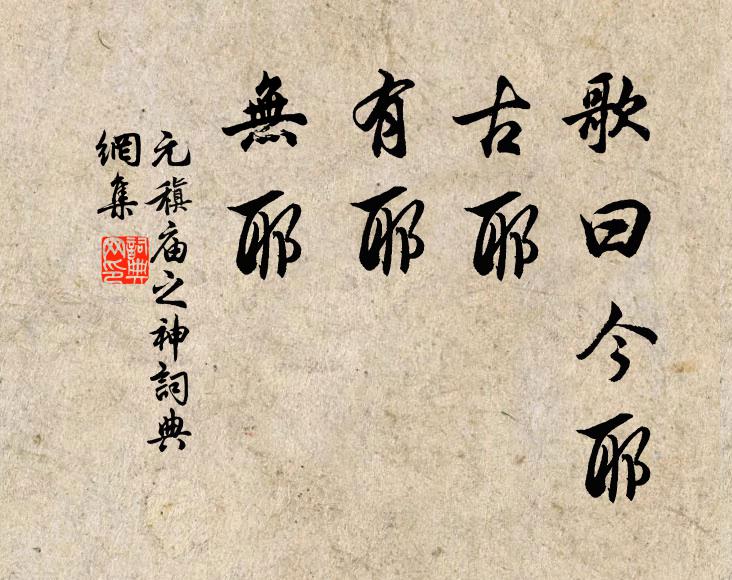 歌曰今耶
古耶
有耶
無耶
元稹庙之神詞典
網集
詞典
网印